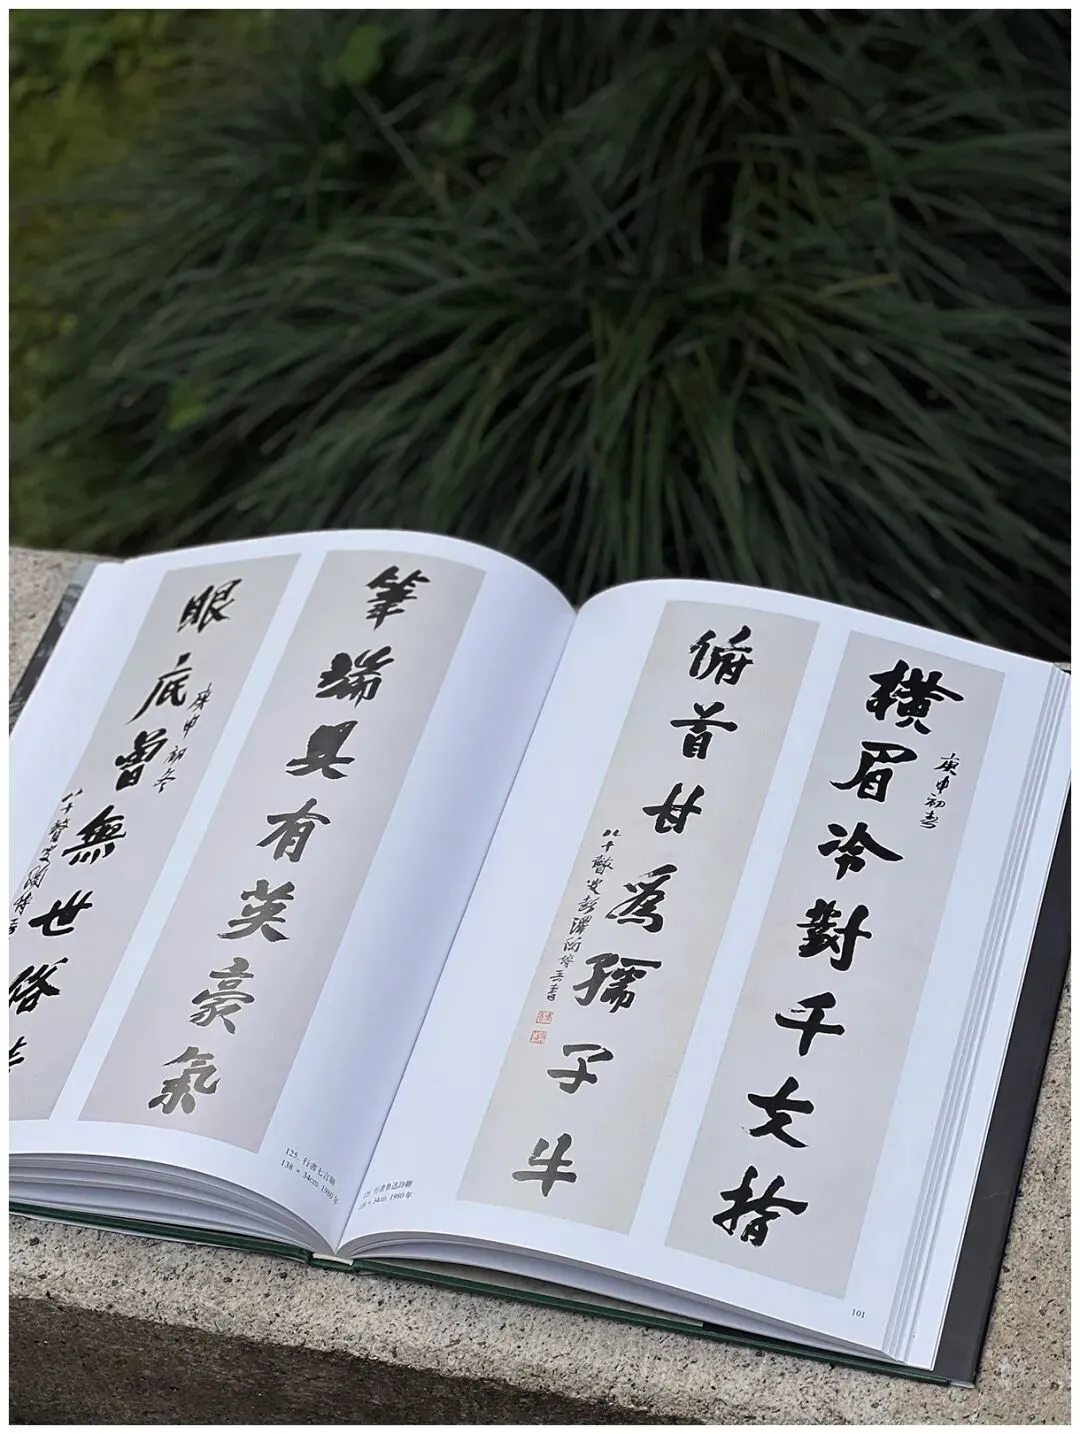 筆端具有英豪氣
庚申初冬
眼底曾無世俗
八十瞽叟陶博吾
125. 行書七言聯
138 × 34cm 1980年
橫眉冷對千夫指
庚申初春
俯首甘為孺子牛
八十瞽叟彭澤陶博吾書
126. 行書魯迅詩聯
138 × 34cm 1980年
101